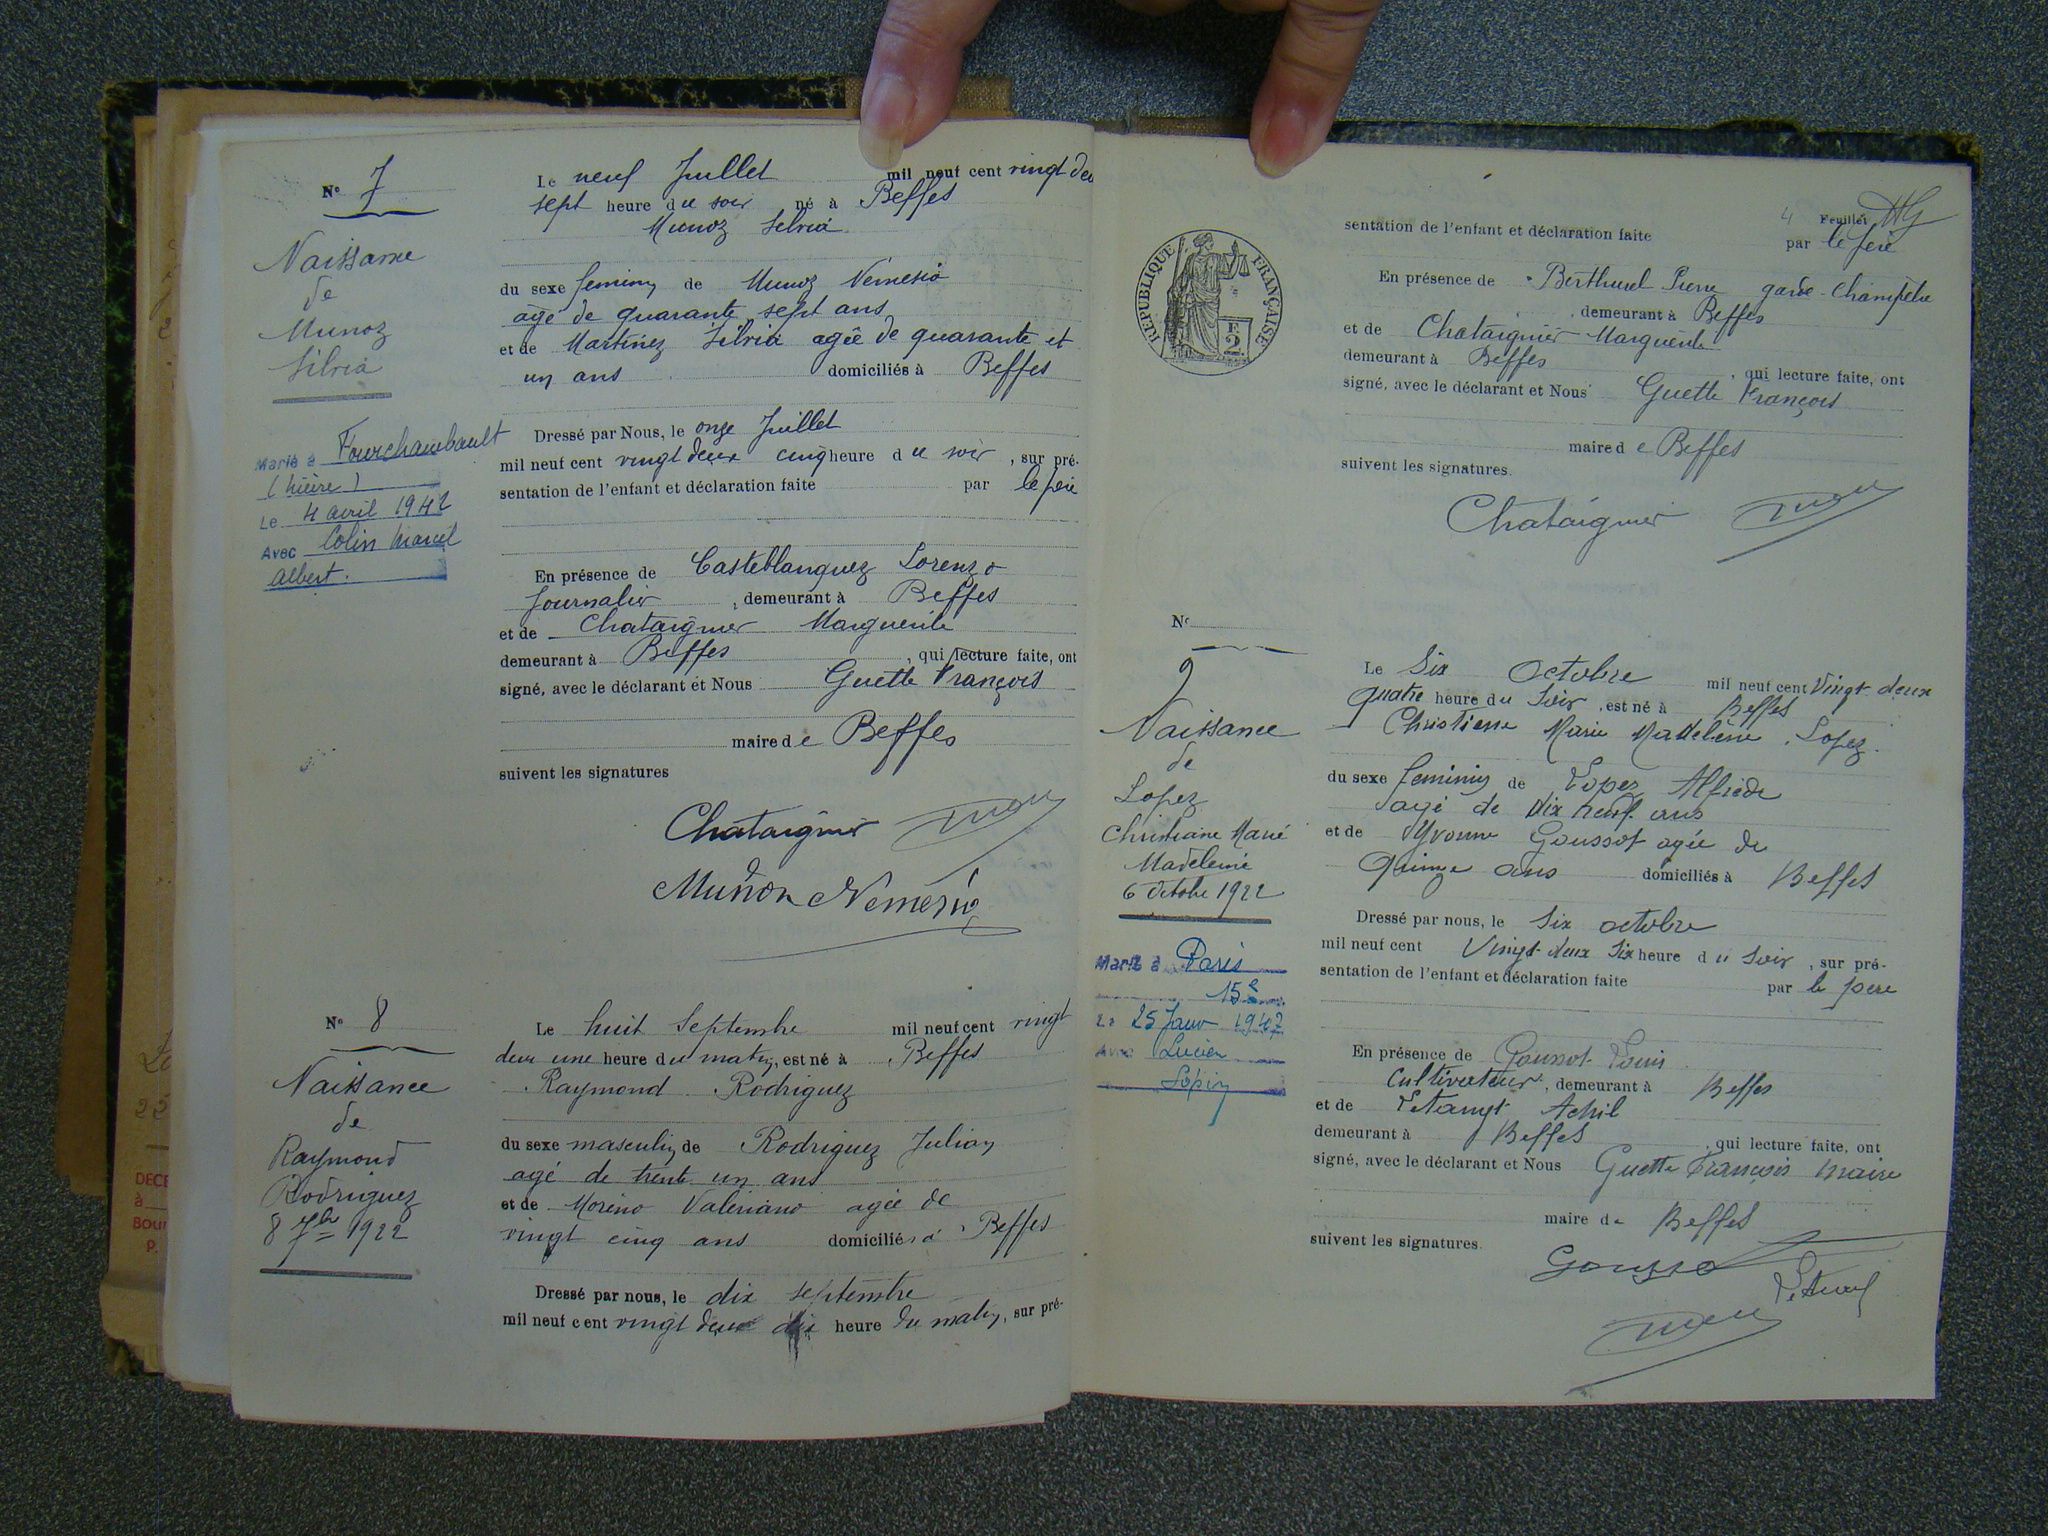 Nº 7
Naissance
de
Munoz
Silvia
Marié à Fourchambault
(Nièvre)
Le 4 avril 1942
Avec Colin Marcel
Albert.
Le neuf Juillet mil neuf cent vingt deu
sept heure du soir né à Beffes
Munoz Silvia
du sexe feminin de Munoz Némésio
agé de quarante sept ans
et de Martinez Silvia agée de quarante et
un ans domiciliés à Beffes
Dressé par Nous, le onze Juillet
mil neuf cent vingt deux cinq heure du soir, sur pré-
sentation de l'enfant et déclaration faite par le père
En présence de Casteblanquez Lorenzo
Journalier, demeurant à Beffes
et de Chataignier Marguerite
demeurant à Beffes, qui lecture faite, ont
signé, avec le déclarant et Nous Guette François
maire de Beffes
suivent les signatures
Chataignier
Muñoz Némésio
Nº 8
Naissance
de
Raymond
Rodriguez
8 7bre 1922
Le huit Septembre mil neuf cent vingt
deux une heure du matin, est né à Beffes
Raymond Rodriguez
du sexe masculin de Rodriguez Julian
agé de trente un ans
et de Moreno Valeriano agée de
vingt cinq ans domiciliés à Beffes
Dressé par nous, le dix septembre
mil neuf cent vingt deux dix heure du matin, sur pré-
4 Feuillet
RÉPUBLIQUE FRANÇAISE
E
2
sentation de l'enfant et déclaration faite par le père
En présence de Berthurel Pierre garde-Champêtre
, demeurant à Beffes
et de Chataignier Marguerite
demeurant à Beffes, qui lecture faite, ont
signé, avec le déclarant et Nous Guette François
maire de Beffes
suivent les signatures.
Chataignier
Nº
9
Naissance
de
Lopez
Christiane Marie
Madeleine
6 Octobre 1922
Marié à Paris
15e
Le 25 Janv 1947
Avec Lucien
Lopin
Le Six Octobre mil neuf cent Vingt-deux
quatre heure du Soir, est né à Beffes
Christiane Marie Madeleine Lopez
du sexe feminin de Lopez Alfréde
agé de dix neuf ans
et de Yvonne Goussot agée de
Quinze ans domiciliés à Beffes
Dressé par nous, le Six octobre
mil neuf cent Vingt-deux Six heure du Soir, sur pré-
sentation de l'enfant et déclaration faite par le père
En présence de Goussot Louis
Cultivateur, demeurant à Beffes
et de Achil
demeurant à Beffes, qui lecture faite, ont
signé, avec le déclarant et Nous Guette François maire
maire de Beffes
suivent les signatures.
Goussot